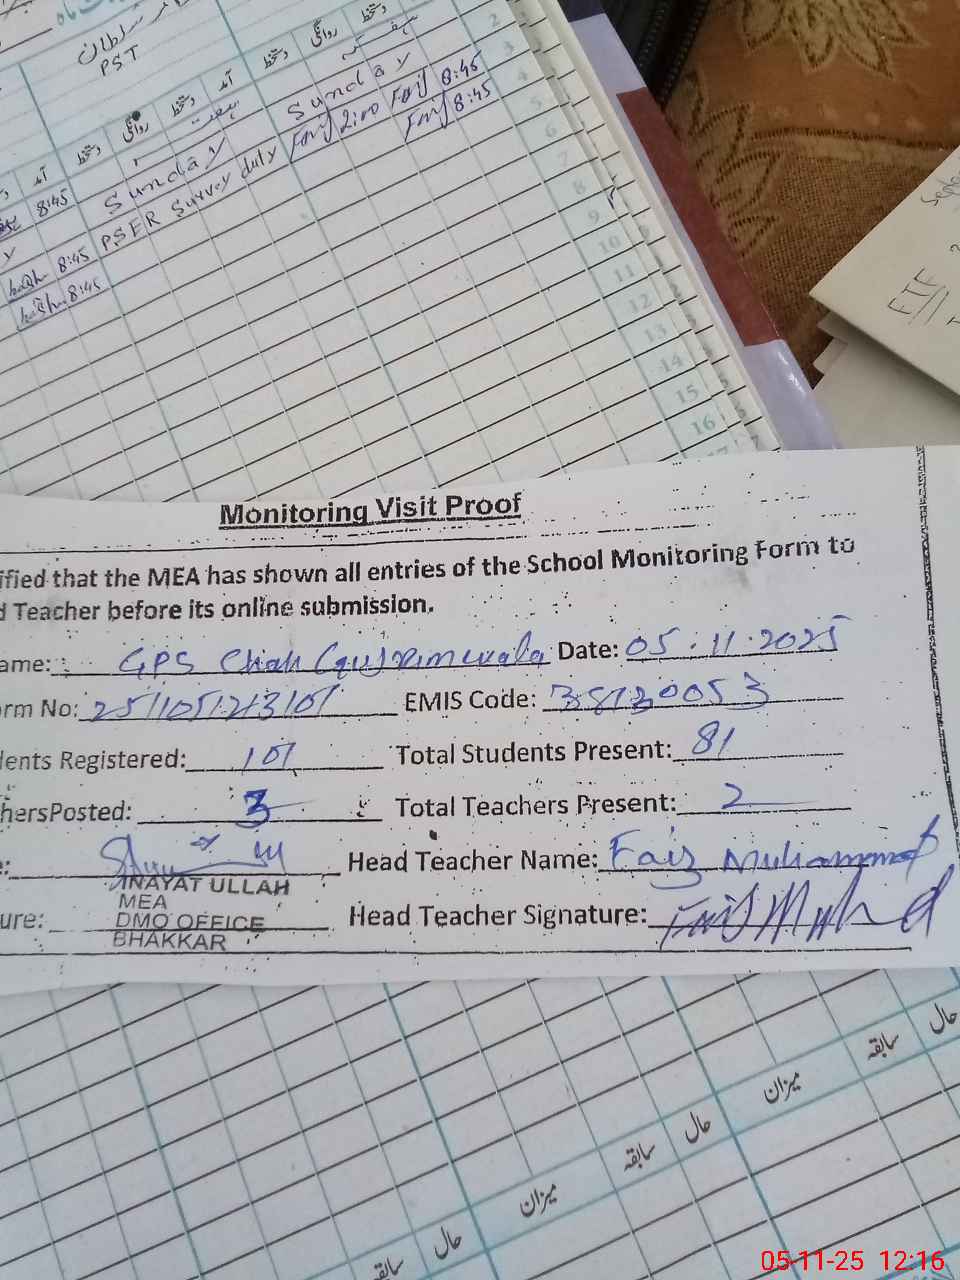 سلطان
PST
آمد دستخط روانگی دستخط آمد دستخط روانگی دستخط
8:45 Sunday Sunday
8:45 PSER Survey duty Faiz 2:00 Faiz 8:45
8:45 Faiz 8:45
2
3
4
5
6
7
8
9
10
11
12
13
14
15
16
EIF
Monitoring Visit Proof
ified that the MEA has shown all entries of the School Monitoring Form to
d Teacher before its online submission.
ame: GPS Chah Date: 05.11.2025
rm No: EMIS Code: 38130053
lents Registered: 101 Total Students Present: 81
hersPosted: 3 Total Teachers Present: 2
Head Teacher Name: Faiz Muhammad
INAYAT ULLAH
MEA
ure: DMO OFFICE Head Teacher Signature:
BHAKKAR
حال سابقہ میزان حال سابقہ میزان حال سابقہ
05-11-25 12:16